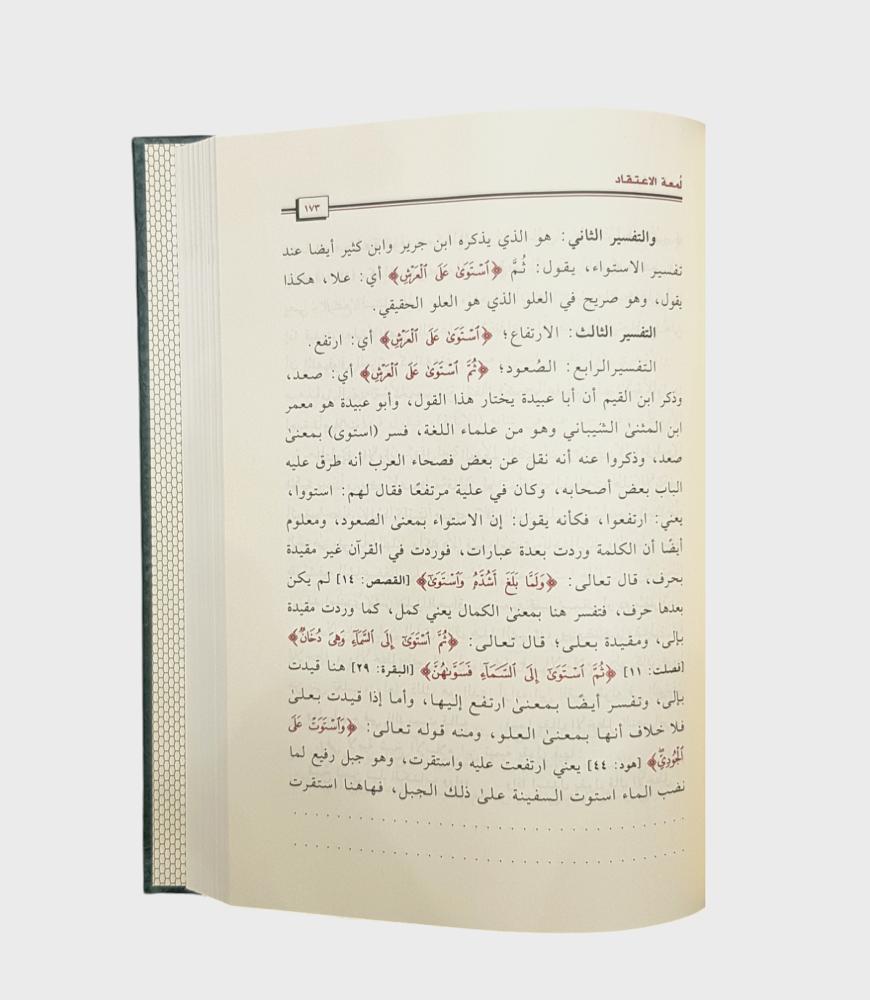 لمعة الاعتقاد
١٧٣
والتفسير الثاني: هو الذي يذكره ابن جرير وابن كثير أيضا عند
تفسير الاستواء، يقول: ثُمَّ ﴿ٱسْتَوَىٰ عَلَى ٱلْعَرْشِ﴾ أي: علا، هكذا
يقول، وهو صريح في العلو الذي هو العلو الحقيقي.
التفسير الثالث: الارتفاع؛ ﴿ٱسْتَوَىٰ عَلَى ٱلْعَرْشِ﴾ أي: ارتفع.
التفسيرالرابع: الصُعود؛ ﴿ثُمَّ ٱسْتَوَىٰ عَلَى ٱلْعَرْشِ﴾ أي: صعد،
وذكر ابن القيم أن أبا عبيدة يختار هذا القول، وأبو عبيدة هو معمر
ابن المثنىٰ الشيباني وهو من علماء اللغة، فسر (استوى) بمعنىٰ
صعد، وذكروا عنه أنه نقل عن بعض فصحاء العرب أنه طرق عليه
الباب بعض أصحابه، وكان في علية مرتفعًا فقال لهم: استووا،
يعني: ارتفعوا، فكأنه يقول: إن الاستواء بمعنىٰ الصعود، ومعلوم
أيضًا أن الكلمة وردت بعدة عبارات، فوردت في القرآن غير مقيدة
بحرف، قال تعالى: ﴿وَلَمَّا بَلَغَ أَشُدَّهُۥ وَٱسْتَوَىٰٓ﴾ [القصص: ١٤] لم يكن
بعدها حرف، فتفسر هنا بمعنىٰ الكمال يعني كمل، كما وردت مقيدة
بإلى، ومقيدة بعلى؛ قال تعالى: ﴿ثُمَّ ٱسْتَوَىٰٓ إِلَى ٱلسَّمَآءِ وَهِىَ دُخَانٌ﴾
[فصلت: ١١] ﴿ثُمَّ ٱسْتَوَىٰٓ إِلَى ٱلسَّمَآءِ فَسَوَّىٰهُنَّ﴾ [البقرة: ٢٩] هنا قيدت
بإلى، وتفسر أيضًا بمعنىٰ ارتفع إليها، وأما إذا قيدت بعلىٰ
فلا خلاف أنها بمعنىٰ العلو، ومنه قوله تعالى: ﴿وَٱسْتَوَتْ عَلَى
ٱلْجُودِىِّۖ﴾ [هود: ٤٤] يعني ارتفعت عليه واستقرت، وهو جبل رفيع لما
نضب الماء استوت السفينة علىٰ ذلك الجبل، فهاهنا استقرت